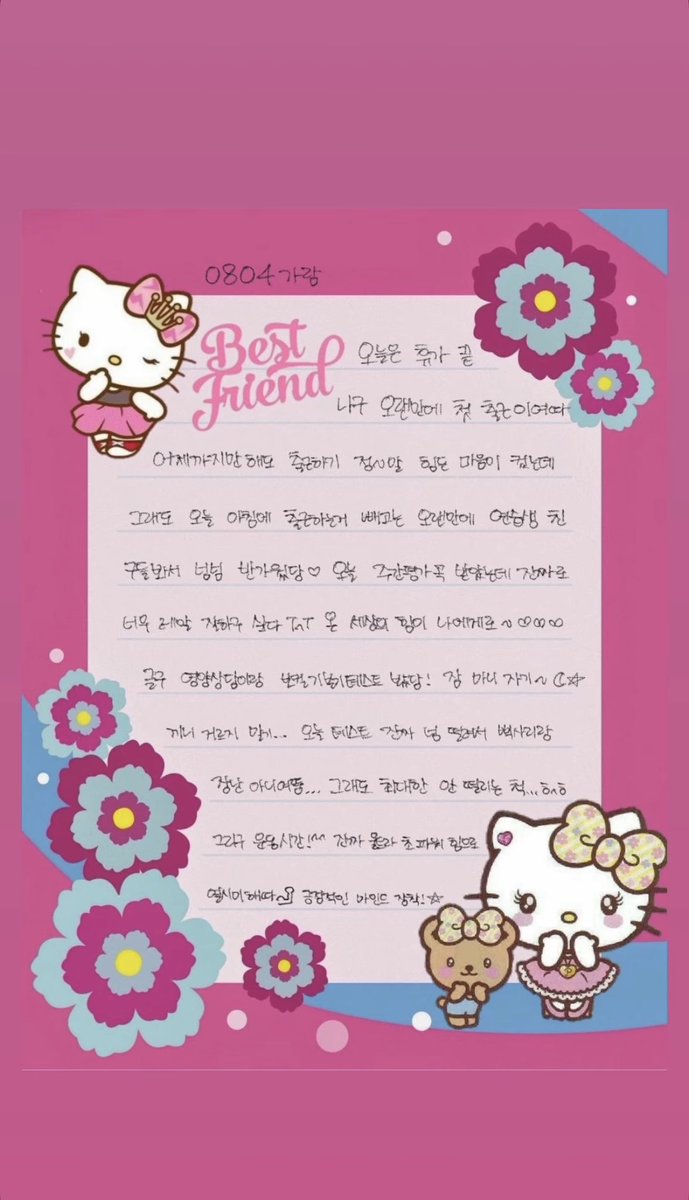 0804 가람
Best
Friend
오늘은 휴가 끝
나구 오랜만에 첫 출근이여따
어제까지만해도 출근하기 정~말 힘든 마음이 컸는데
그래도 오늘 아침에 출근하는거 빼고는 오랜만에 연습생 친
구들봐서 넘넘 반가웠당♡ 오늘 주간평가곡 받았는데 진짜로
너무 레알 잘하구 싶다 TㅜT 온 세상의 힘이 나에게로~♡♡♡♡
글구 영양상담이랑 테스트 봤당! 잠 마니 자기~☾☆
끼니 거르지 말기... 오늘 테스트 진짜 넘 떨려서
장난 아니어뜸... 그래도 최대한 안 떨리는 척...ㅎㅅㅎ
그리구 운동시간!^^ 진짜 몰라 초파워 힘으로
열시미해따 긍정적인 마인드 장착!☆